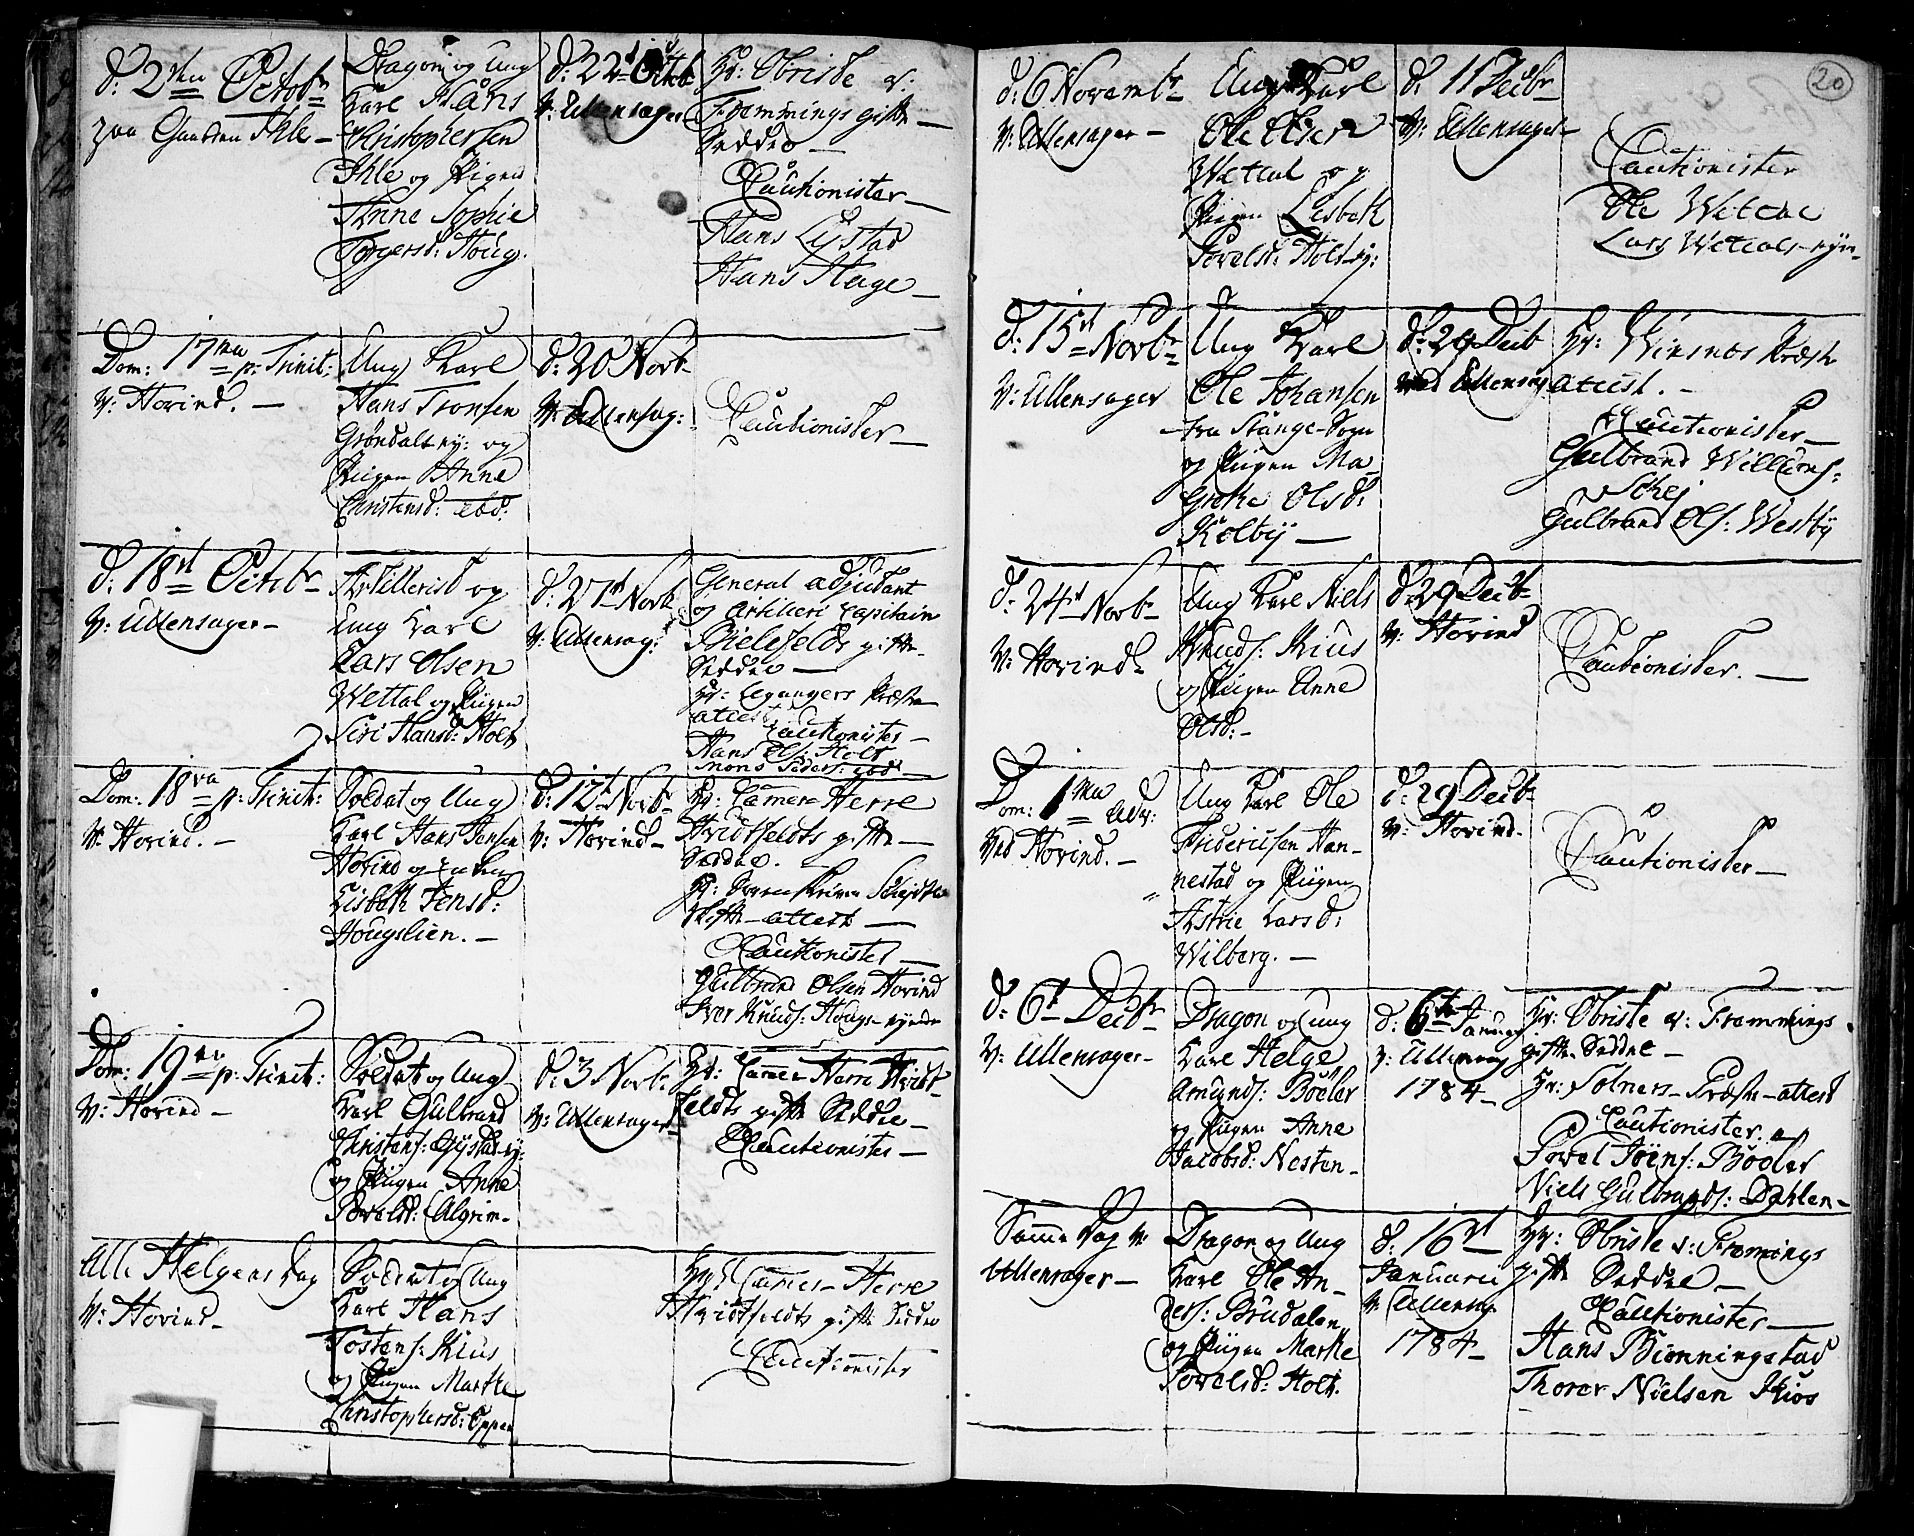 d: 2den Octobr
paa Gaarden Ihle –
Dragon og Ung
Karl Hans
Christophersen
Ihle og Pigen
Anne Sophie
Torgersd: Houg.
d: 22 Octobr
V: Ullensager
Hr: Obriste v:
Fremmings gifte –
Seddel –
Cautionister –
Hans Lystad
Hans Hage –
Dom: 17ma p: Trinit:
V: Hovind. –
Ung Karl
Hans Tronsen
Grøndals ey: og
Pigen Anne
Christensd: ibd:
d: 20 Novb
V: Ullensag:
Cautionister –
d: 18st Octobr
V: Ullensager –
Artillerist og
Ung Karl
Lars Olsen
Wettal og Pigen
Siri Hansd: Holt
d: 27st Novb
V: Ullensag:
General adjudant
og Artilleri Capitain
Bielefelds gifte
Seddel –
Hr: Legangers Præste
attest
Cautionister –
Hans Ols: Holt
Mons Peders: ibd
Dom: 18va p: Trinit:
V: Hovind. –
Soldat og Ung
Karl Hans Jensen
Hovind og Enken
Lisbeth Jensd:
Hougslien. –
d: 12t Novbr
V: Hovind –
Hr: Cammer Herre
Hvidtfeldts gifte –
Seddel. –
Skifte – attest –
Cautionister –
Gulbrand Olsen Hovind
Iver Knuds: Hougs – eyende
Dom: 19na p: Trinit:
V: Hovind –
Soldat og Ung
Karl Gulbrand
Christens: Gystad ey:
og Pigen Anne
Povelsd: Algrim –
d: 3 Novb:
V: Ullensager –
Hr: Cammer Herre Hvidt-
feldts gifte Seddel –
Cautionister –
Alle Helgens Dag
V: Hovind –
Soldat og Ung
Karl Hans
Tostens: Kius
og Pigen Marthe
Christophersd: Oppen
Hr: Cammer – Herre
Hvidtfeldts gifte Seddel
Cautionister
20
d: 6 Novembr
V: Ullensager –
Ung Karl
Ole Olsen
Wettal og
Pigen Lisbeth
Povelsd: Holts ey:
d: 11 Decbr
V: Ullensager –
Cautionister
Ole Wettal
Lars Wettals – eyn –
d: 15st Novbr
V: Ullensager
Ung Karl
Ole Johansen
fra Stange – Sogn
og Pigen Ma-
Grethe Olsd:
Kolby –
d: 29 Decb
ved Ullensag
Hr: Winsnes Præste
attest. –
Cautionister –
Gulbrand Willums:
Skej
Gulbrand Ols: Westby
d: 24st Novbr
V: Hovind
Ung Karl Niels
Knuds: Kius
og Pigen Anne
Olsd: –
d: 29 Decbr
V: Hovind
Cautionister. –
Dom: 1ma Adv:
Ved Hovind. –
Ung Karl Ole
Fridericksen Han-
nestad og Pigen
Astrie Larsd:
Wilberg. –
d: 29 Decbr
V: Hovind.
Cautionister –
d: 6t Decbr
V: Ullensager –
Dragon og ung
Karl Helge
Amunds: Boeler
og Pigen Anne
Jacobsd: Nesten –
d: 6te Januar
V: Ullensag
1784 –
Hr: Obriste v: Fremmings
gifte Seddel –
Hr: Tolners – Præste – attest
Cautionister.
Povel Joens: Bøeler
Niels Gulbrands: Dahlen –
Samme Dag V:
Ullensager –
Dragon og Ung
Karl Ole An-
ders: Brudalen
og Pigen Marthe
Povelsd: Holt.
d: 16st
Januarii
V: Ullensag
1784 –
Hr: Obriste v: Fremings
gifte Seddel –
Cautionister –
Hans Biønningstad
Thorer Nielsen Kios